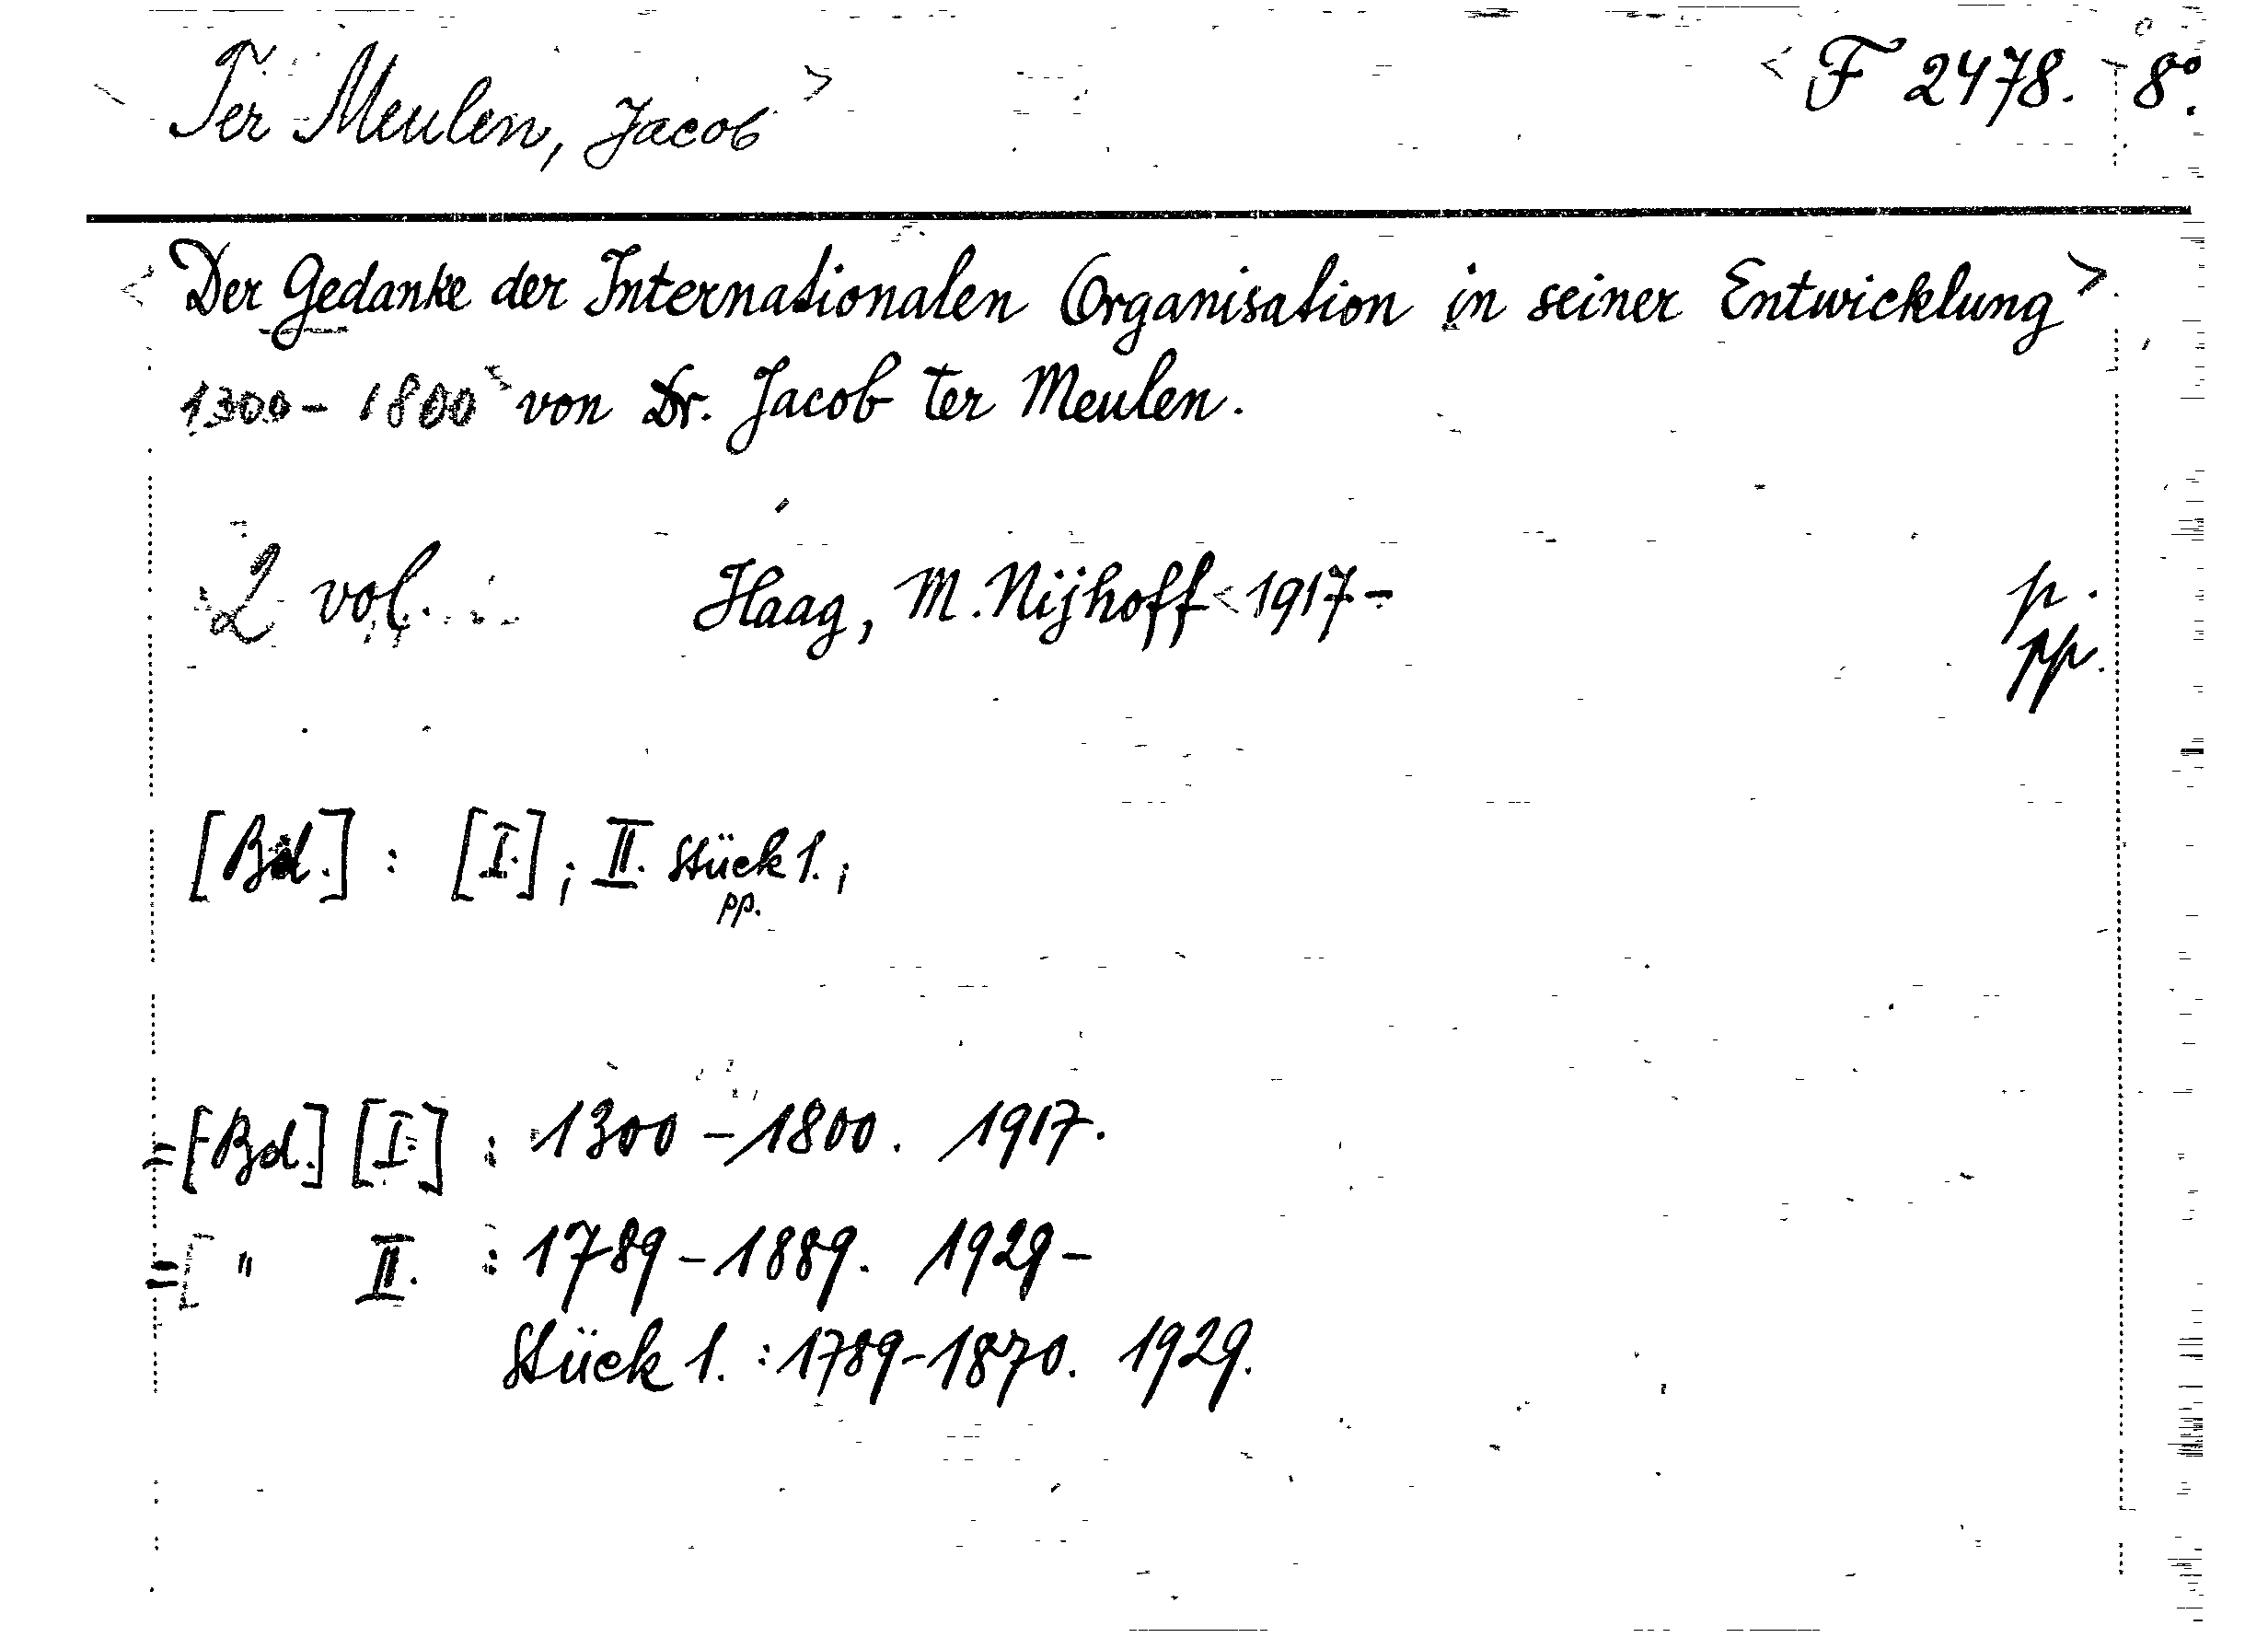 Ter Meulen, Jacob > < F 2478. 8°.
< Der Gedanke der Internationalen Organisation in seiner Entwicklung >
1300 - 1800 von Dr. Jacob ter Meulen.
2 vol. Haag, M. Nijhoff < 1917 - p.
pp.
[Bd.] : [I.] ; II. Stück 1. ;
pp.
= [Bd.] [I.] : 1300 - 1800. 1917.
= [ " II. : 1789 - 1889. 1929 -
Stück 1. : 1789 - 1870. 1929.